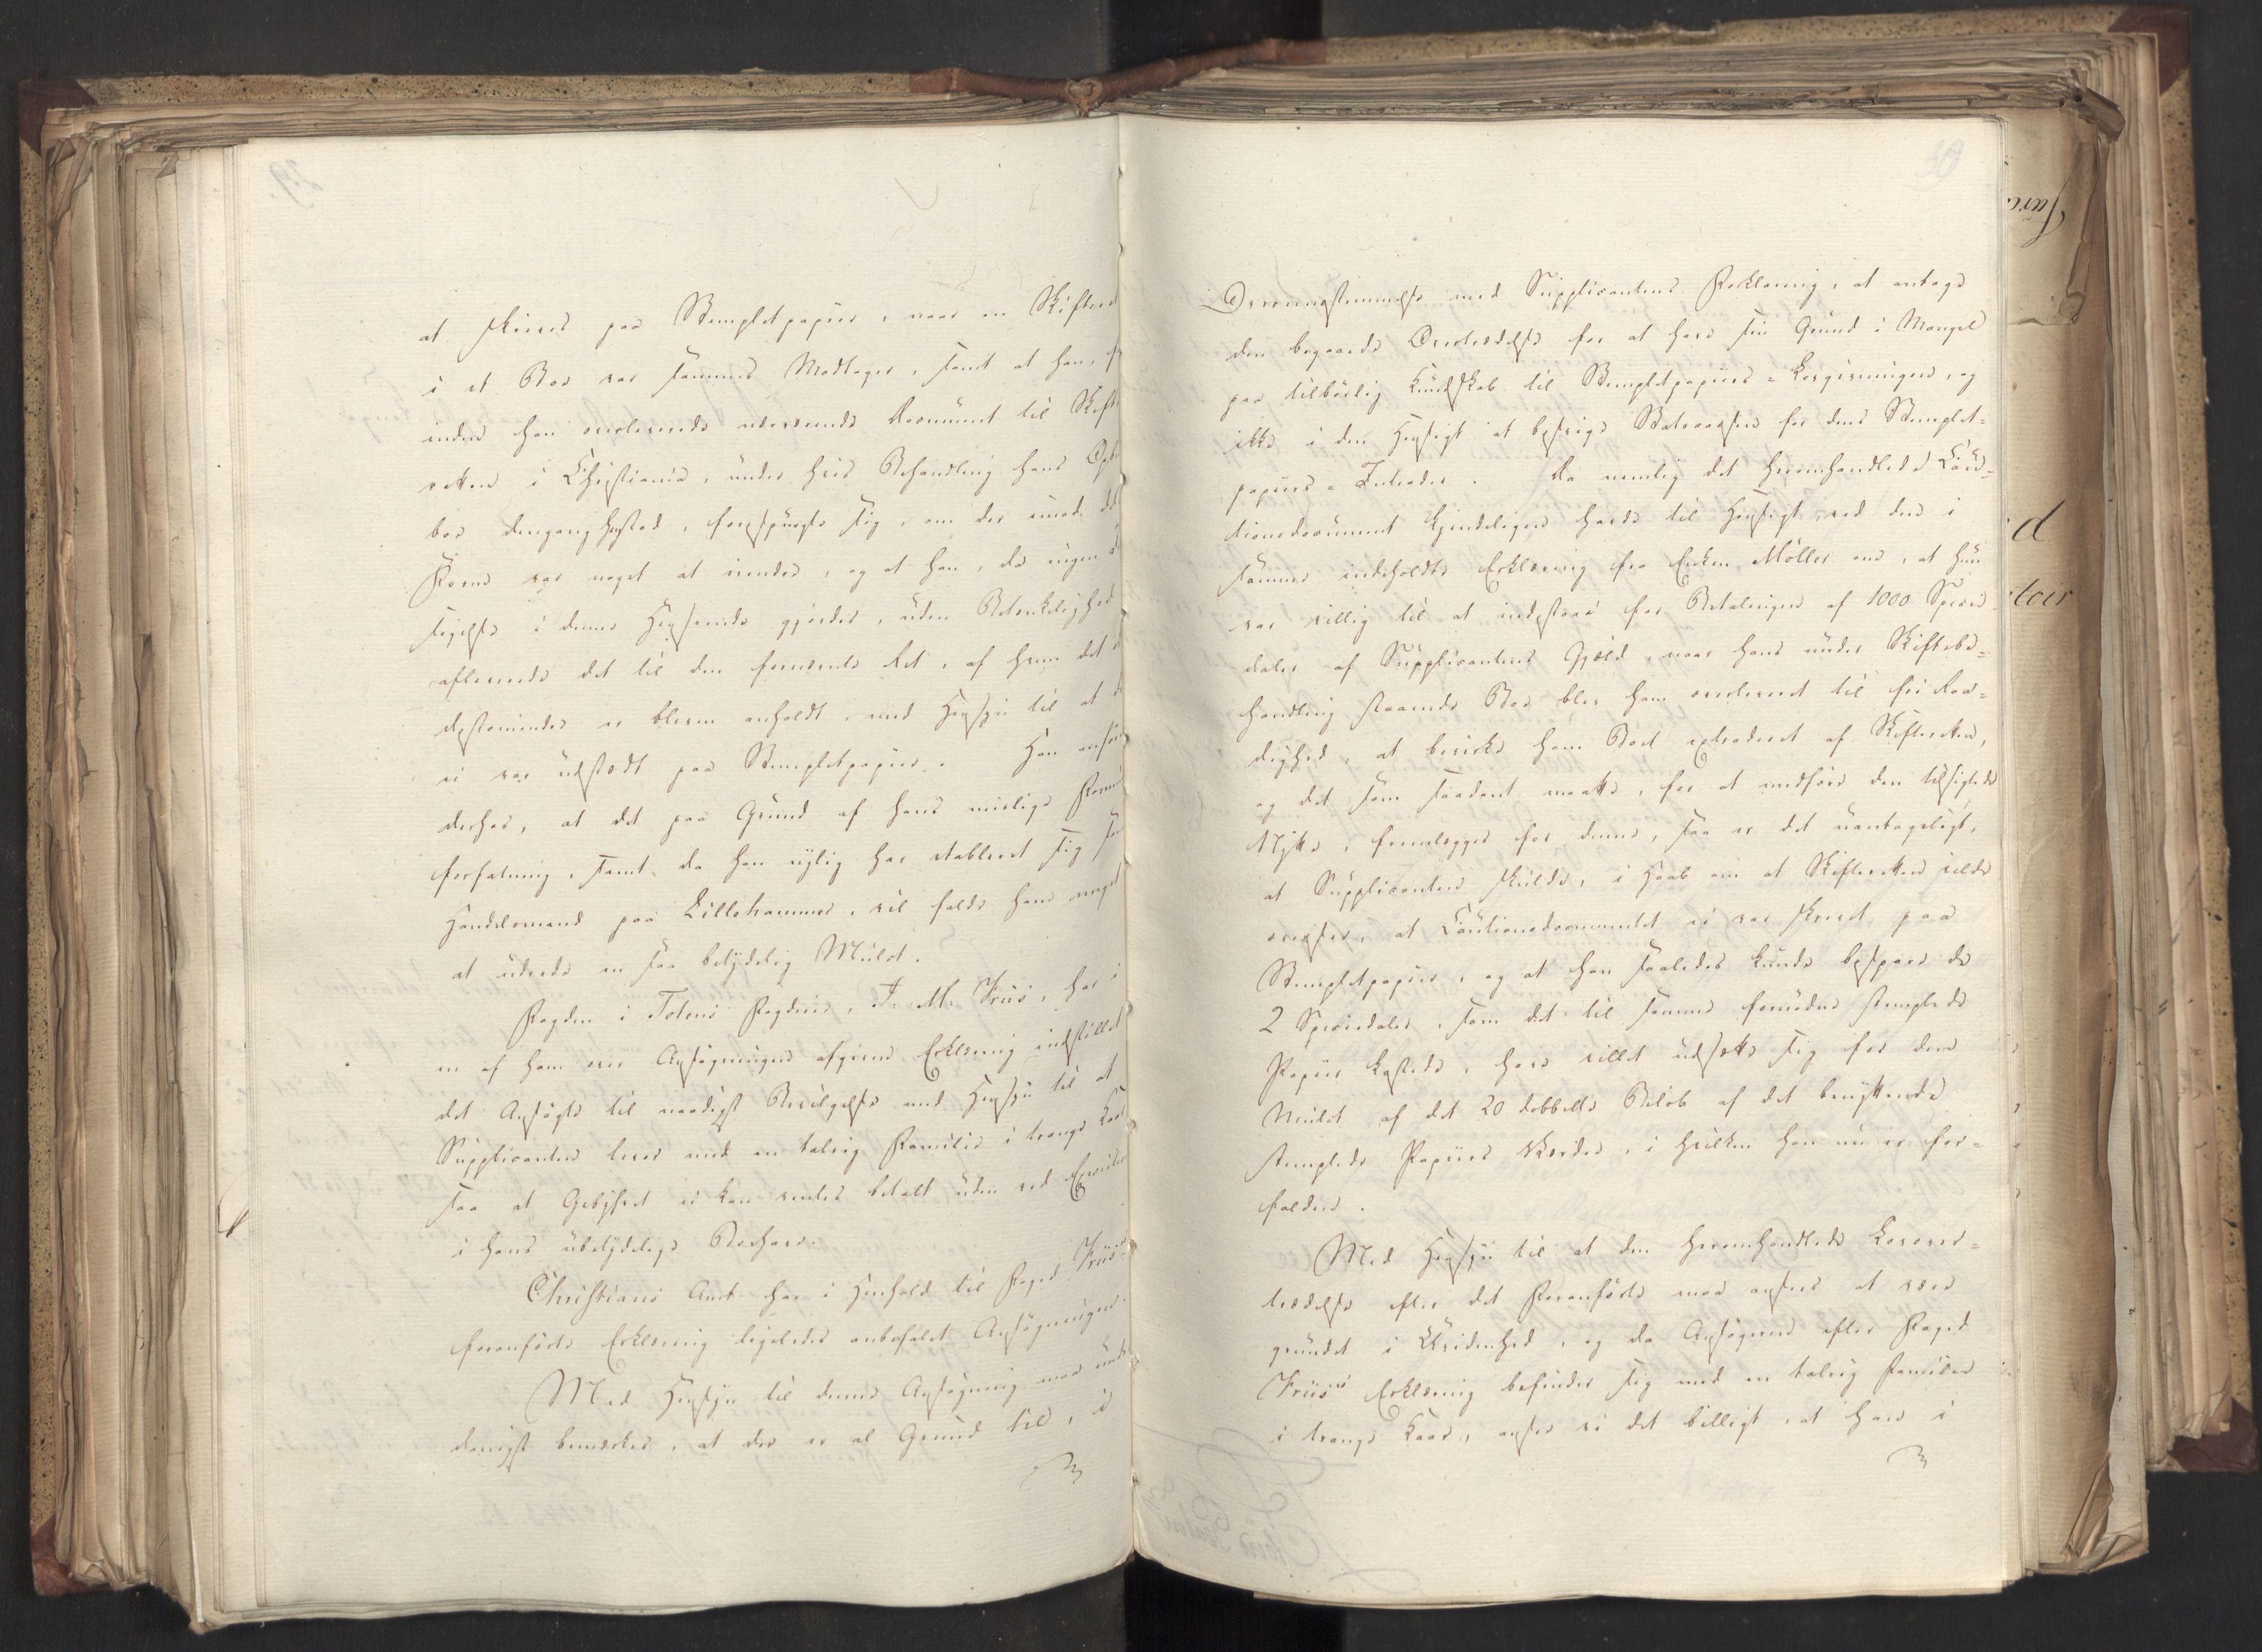 at skrives paa Stemplet papiir, naar en Skifteret
i et Boe var sammes Modtager, samt at han,
inden han overleverede nærværende Document til Skifte
retten i Christiania, under hvis Behandling hans Opbuds
boe dengang henstod, forespurgte sig, om der imod dets
Form var noget at erindre, og at han, da ingen
sigelse i denne Henseende gjordes, uden Betænkelighed
afleverede det til den fornævnte Ret, af hvem det
destomindre er bleven anholdt, med Hensyn til at det
ei var udstædt paa Stemplet papiir. Han anfører
derhos, at det paa Grund af hans mislige Formues
forfatning, samt da han nylig har etableret sig som
Handelsmand paa Lillehammer, vil falde ham meget
at udrede en saa betydelig Mulct.
Fogden i Totens Fogderie, F. M. Friis, har i
en af ham over Ansøgningen afgiven Erklæring indstillet
det Ansøgte til naadigst Bevilgelse med Hensyn til at
Supplicanten lever med en talrig Familie i trange Kaar
saa at Gebyhret ei kan ventes betalt uden ved Execution
i hans ubetydelige Boehave.
Christians Amt har i Henhold til Foged Friis's
foranførte Erklæring ligeledes anbefalet Ansøgningen.
Med Hensyn til denne Ansøgning maa under
danigst bemærkes, at der er al Grund til, i
30
Overeensstemmelse med Supplicantens Forklaring, at antage
den begaaede Overtrædelse for at have sin Grund i Mangel
paa tilbørlig Kundskab til Stemplet papiirs-Lovgivningen, og
ikke i den Hensigt at besvige Statscassen for dens Stemplet-
papiirs-Intrader. Da nemlig det heromhandlede Cau-
tionsdocument kjendeligen havde til Hensigt, ved den i
samme indeholdte Erklæring fra Enken Møller om, at hun
var villig til at indestaae for Betalingen af 1000 Species-
daler af Supplicantens Gjæld, naar hans under Skiftebe-
handling staaende Boe blev ham overleveret til fri Raa-
dighed, at bevirke ham Boet extraderet af Skifteretten,
og det som saadant maatte, for at medføre den tilsigtede
Nytte, fremlægges for denne, saa er det uantageligt,
at Supplicanten skulde, i Haab om at Skifteretten vilde
oversee, at Cautionsdocumentet ei var skrevet paa
Stemplet papiir, og at han saaledes kunde bespare de
2 Speciesdaler, som det til samme fornødne stemplede
Papiir kostede, have villet udsætte sig for den
Mulct af det 20 dobbelte Beløb af det benyttende
stemplede Papiirs Værdie, i hvilken han nu er for-
falden.
Med Hensyn til at den heromhandlede Lovover-
trædelse efter det Foranførte maa ansees at være
grundet i Uvidenhed, og da Ansøgeren efter Foged
Friis's Erklæring befinder sig med en talrig Familie
i trange Kaar, ansee vi det billigt, at han i